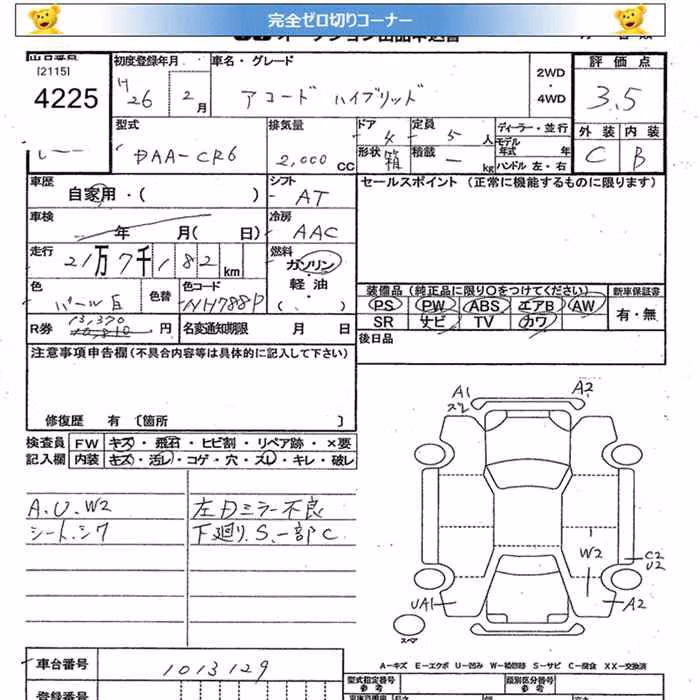 完全ゼロ切りコーナー
[2115]
4225
初度登録年月
H
26 2 月
車名・グレード
アコード ハイブリッド
2WD
・
4WD
評価点
3.5
外装 内装
C B
型式
DAA-CR6
排気量
2,000 CC
ドア 4
定員 5 人
形状 箱
積載 — kg
ディーラー・並行
モデル
年式 年
ハンドル 左・右
車歴
自家用・( )
シフト
AT
セールスポイント (正常に機能するものに限ります)
車検
年 月( 日)
冷房
AAC
走行
21万7千182 km
燃料
ガソリン
・
軽油
( )
色
パール白
色替
色コード
NH788P
装備品(純正品に限り○をつけてください)
新車保証書
PS PW ABS エアB AW
SR ナビ TV カワ
有・無
R券
13,370
10,810 円
名変通知期限 月 日
後日品
注意事項申告欄(不具合内容等は具体的に記入して下さい)
修復歴 有 〔箇所 〕
検査員
記入欄
FW キズ・飛石・ヒビ割・リペア跡・×要
内装 キズ・汚レ・コゲ・穴・スレ・キレ・破レ
A.U.W2
シート.シワ
左Dミラー不良
下廻り.S.一部C
A1
スレ
A2
W2
C2
U2
UA1
A2
スペア
A-キズ E-エクボ U-凹み W-補修跡 S-サビ C-腐食 XX-交換済
車台番号
1013129
登録番号
型式指定番号
参考
類別区分番号
参考